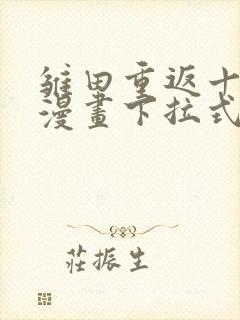 雏田重返十
漫畫下拉式
莊振生